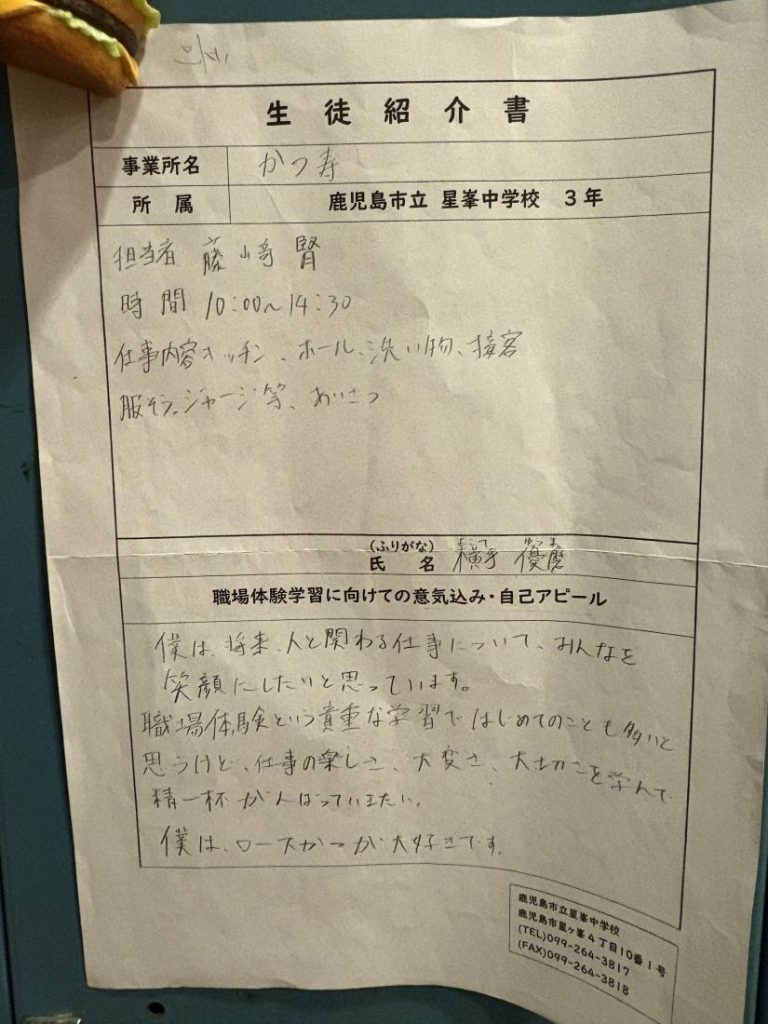 生徒紹介書
事業所名 かつ寿
所属 鹿児島市立 星峯中学校 3年
担当者 藤崎 腎
時間 10:00~14:30
仕事内容 キッチン、ホール、洗い物、接客
服そう。ジャージ等、あいさつ
(ふりがな) よこて ゆうま
氏名 横手 優磨
職場体験学習に向けての意気込み・自己アピール
僕は、将来、人と関わる仕事について、みんなを
笑顔にしたいと思っています。
職場体験という貴重な学習ではじめてのことも多いと
思うけど、仕事の楽しさ、大変さ、大切さを学んで
精一杯がんばっていきたい。
僕は、ロースかつが大好きです。
鹿児島市立星峯中学校
鹿児島市星ヶ峯4丁目10番1号
(TEL)099-264-3817
(FAX)099-264-3818